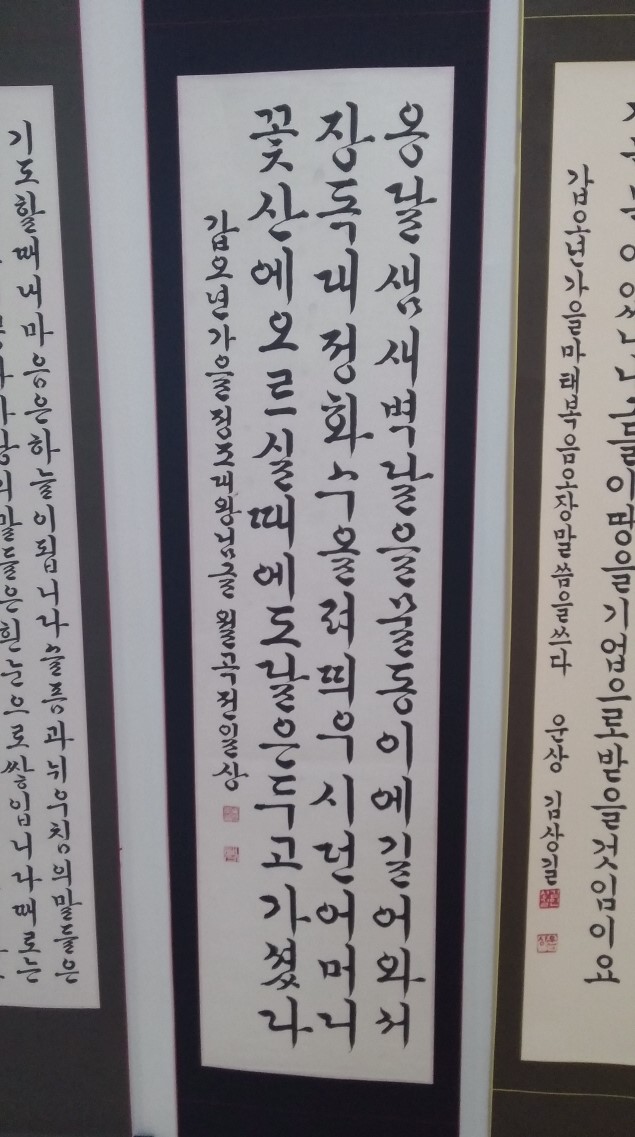 그들이땅을기업으로받을것임이요
갑오년가을마태복음오장말씀을쓰다 운상 김상길
옹달샘새벽달을물동이에길어와서
장독대정화수올려띄우시던어머니
꽃산에오르실때에도달은두고가셨다
갑오년가을정조대왕님글 월곡전일상
기도할때내마음은하늘이됩니다슬픔과뉘우침의말들은
말들은흰눈으로쌓입니다때로는